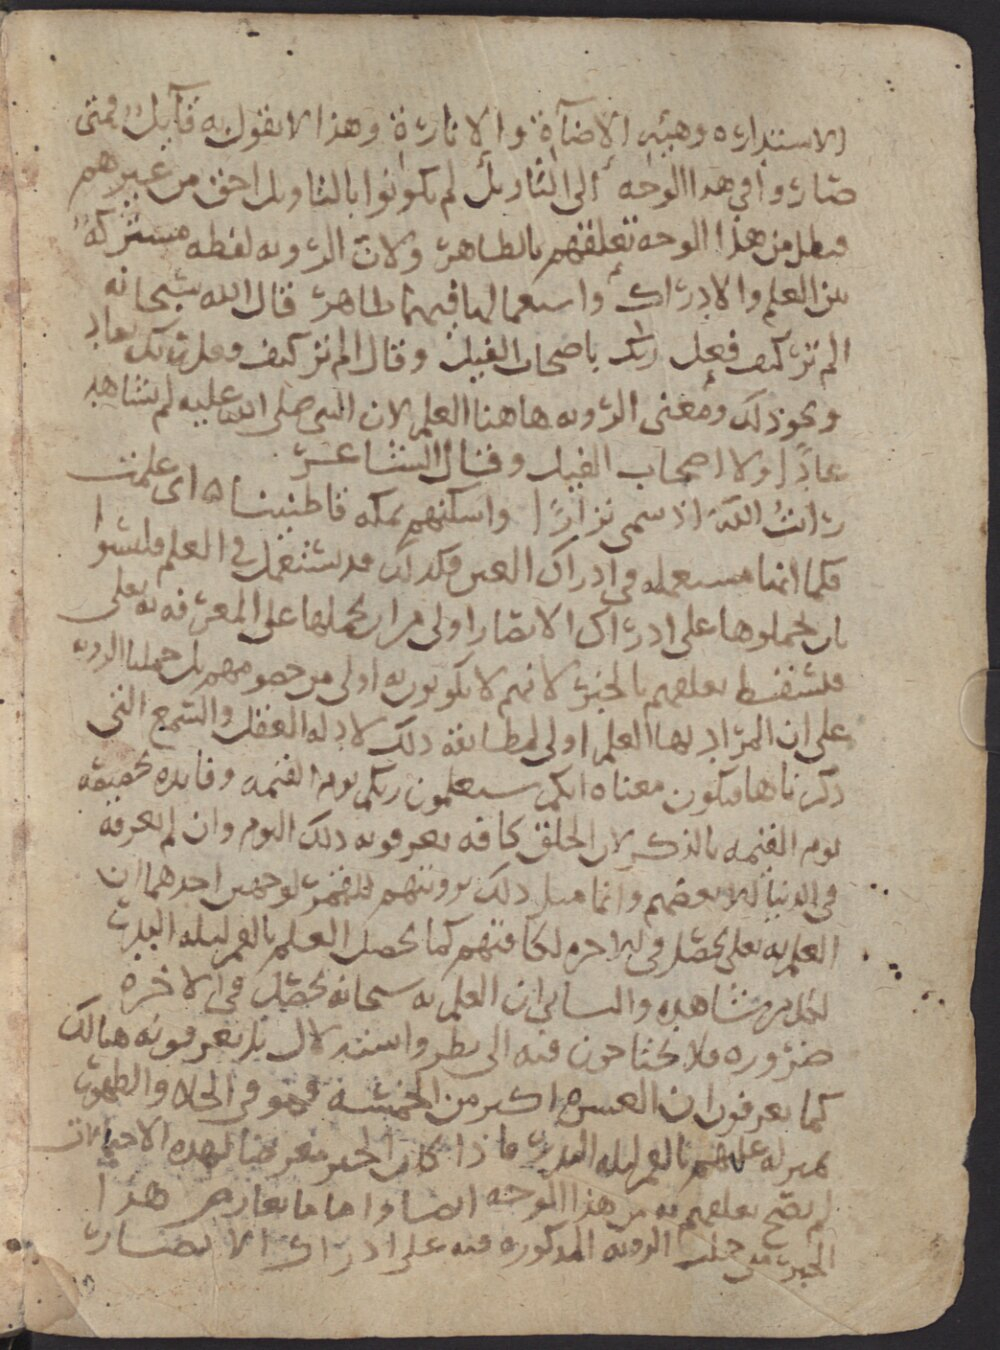 الاستداره وهيئه الاضآة والانارة وهذا لا يقول به قآيل فمتى
صاروا في هذا الوجه الى التاويل لم يكونوا بالتاويل احق من غيرهم
فبطل من هذا الوجه تعلقهم بالظاهر ولان الرويه لفظه مشتركه
بين العلم والادراك واستعمالها فيهما ظاهر قال الله سبحانه
الم تر كيف فعل ربك باصحاب الفيل وقال الم تر كيف فعل ربك بعاد
ونحو ذلك ومعنى الرويه هاهنا العلم لان النبي صلى الله عليه لم يشاهد
عادًا ولا اصحاب الفيل وقال الشاعر
رايت الله اذ سمى نزارًا واسكنهم بمكه قاطنينا اى علمت
فكما انها مستعمله في ادراك العين فكذلك قد يستعمل في العلم فليسوا
بان حملوها على ادراك الابصار اولى من ان نحملها على المعرفه به تعلى
فيسقط تعلقهم بالخبر لانهم لا يكونون به اولى من خصومهم بل حملنا الرويه
على ان المراد بها العلم اولى لمطابقه ذلك لادله العقل والسمع التي
ذكرناها فيكون معناه انكم ستعلمون ربكم يوم القيمه وفايده تخصيصه
يوم القيمه بالذكر لان الخلق كافه يعرفونه ذلك اليوم وان لم يعرفه
في الدنيا الا بعضهم وانما مثل ذلك برويتهم للقمر لوجهين احدهما ان
العلم به تعلى يحصل في الاخره لكافتهم كما يحصل العلم بالقمر ليله البدر
لكل من شاهده والثاني ان العلم به سبحانه يحصل في الاخره
ضروره فلا يحتاجون فيه الى نظر واستدلال بل يعرفونه هنالك
كما يعرفون ان العشره اكثر من الخمسه فهو في الجلا والظهور
بمنزله علمهم بالقمر ليله البدر فاذا كان الخبر معرضا لهذه الاحتمالات
لم يصح تعلقهم به من هذا الوجه ايضا واما ما يعارض هذا
الخبر متى حملت الرويه المذكوره فيه على ادراك الابصار